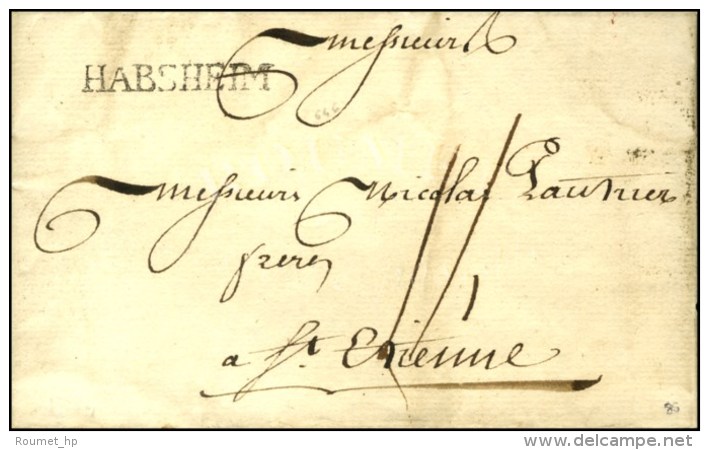 Messieurs
HABSHEIM
646
Messieurs Nicolas
freres
a St. Etienne
Roumet_hp
www.delcampe.net